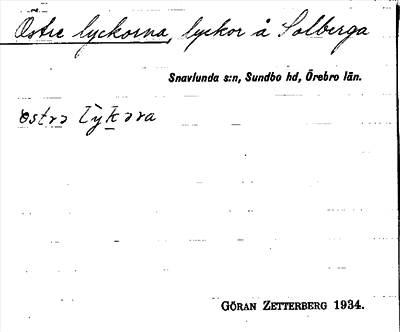 Östre lyckorna, lyckor å Solberga
Snavlunda s:n, Sundbo hd, Örebro län.
östrə lykəra
GÖRAN ZETTERBERG 1934.